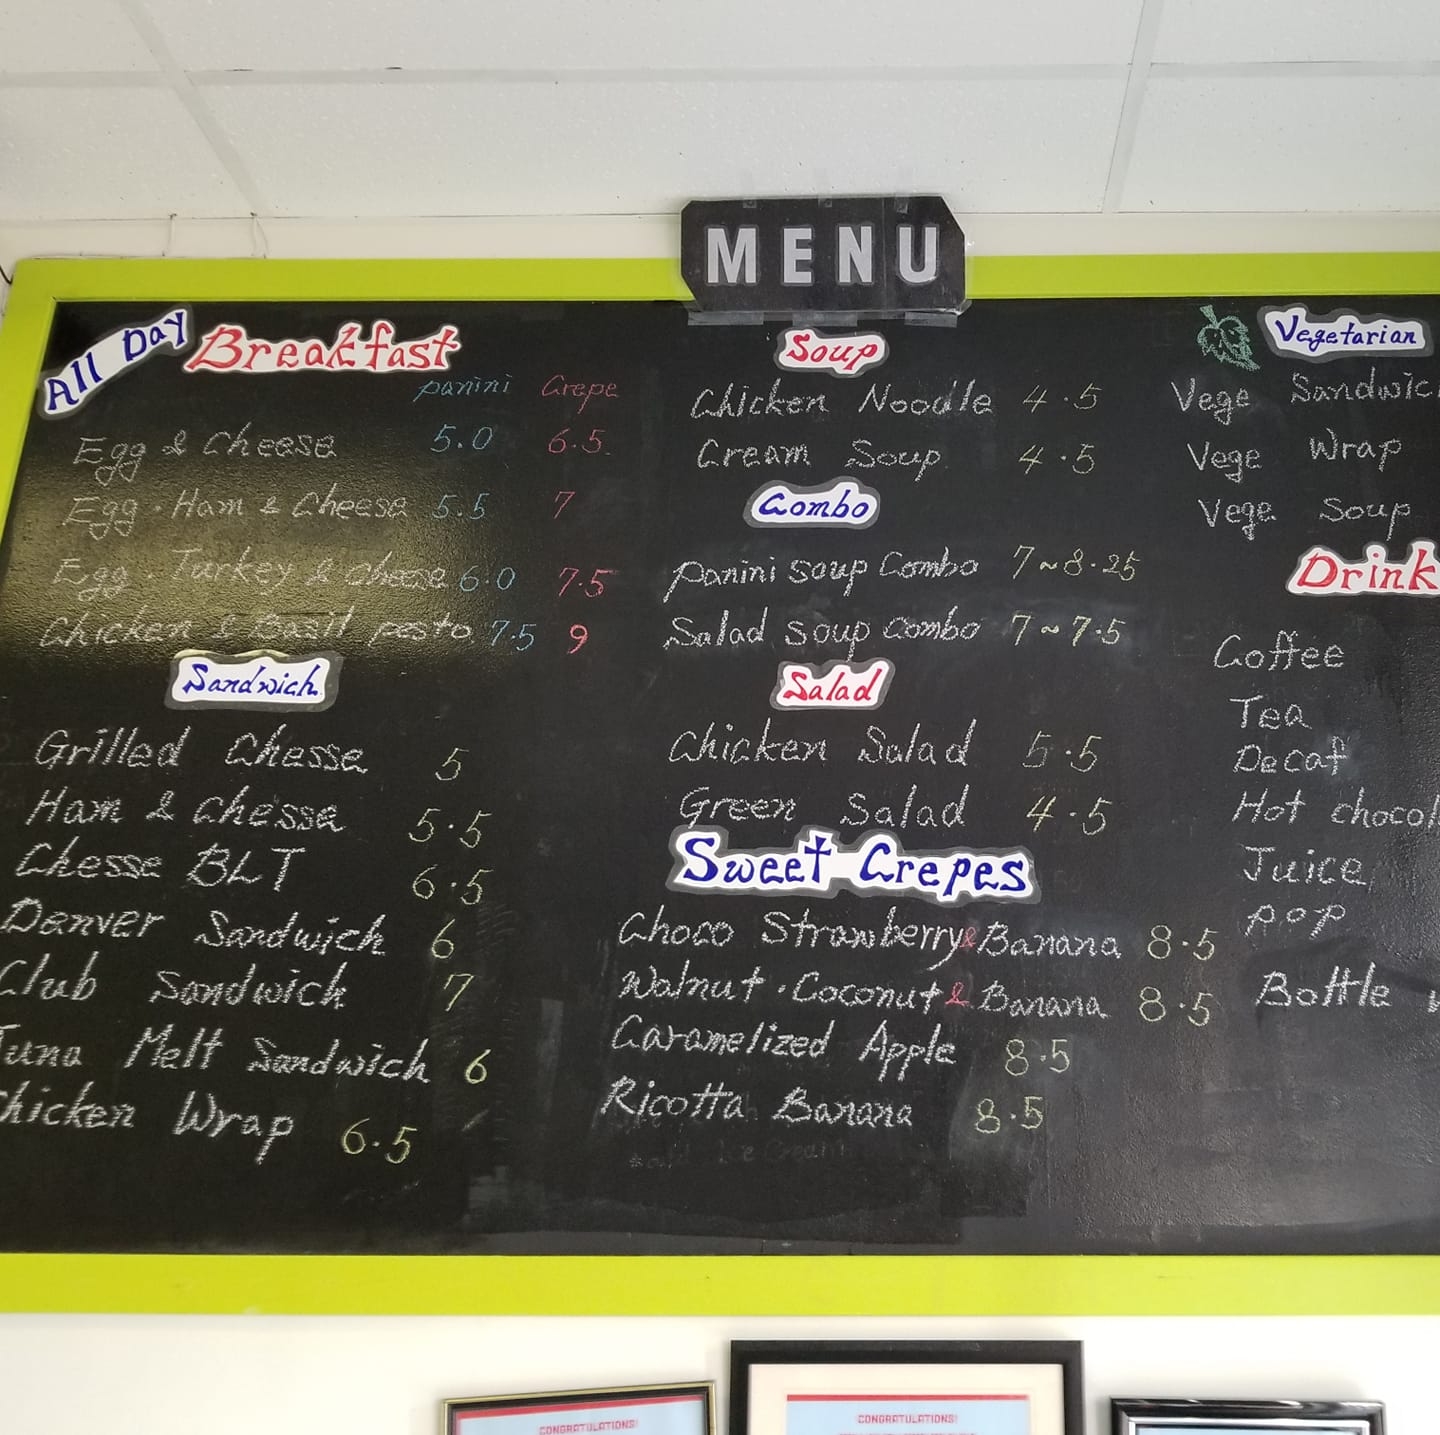 MENU
All Day Breakfast
panini Crepe
Egg & Cheese 5.0 6.5
Egg Ham & Cheese 5.5 7
Egg Turkey & cheese 6.0 7.5
Chicken & Basil pesto 7.5 9
Sandwich
Grilled Chesse 5
Ham & Chesse 5.5
Chesse BLT 6.5
Denver Sandwich 6
Club Sandwich 7
Tuna Melt Sandwich 6
Chicken Wrap 6.5
Soup
Chicken Noodle 4.5
Cream Soup 4.5
Combo
Panini soup Combo 7~8.25
Salad soup combo 7~7.5
Salad
Chicken Salad 5.5
Green Salad 4.5
Sweet Crepes
Choco Strawberry & Banana 8.5
Walnut . Coconut & Banana 8.5
Caramelized Apple 8.5
Ricotta Banana 8.5
Ice Cream
Vegetarian
Vege Sandwic
Vege Wrap
Vege Soup
Drink
Coffee
Tea
Decaf
Hot chocol
Juice
pop
Bottle
CONGRATULATIONS!
CONGRATULATIONS!